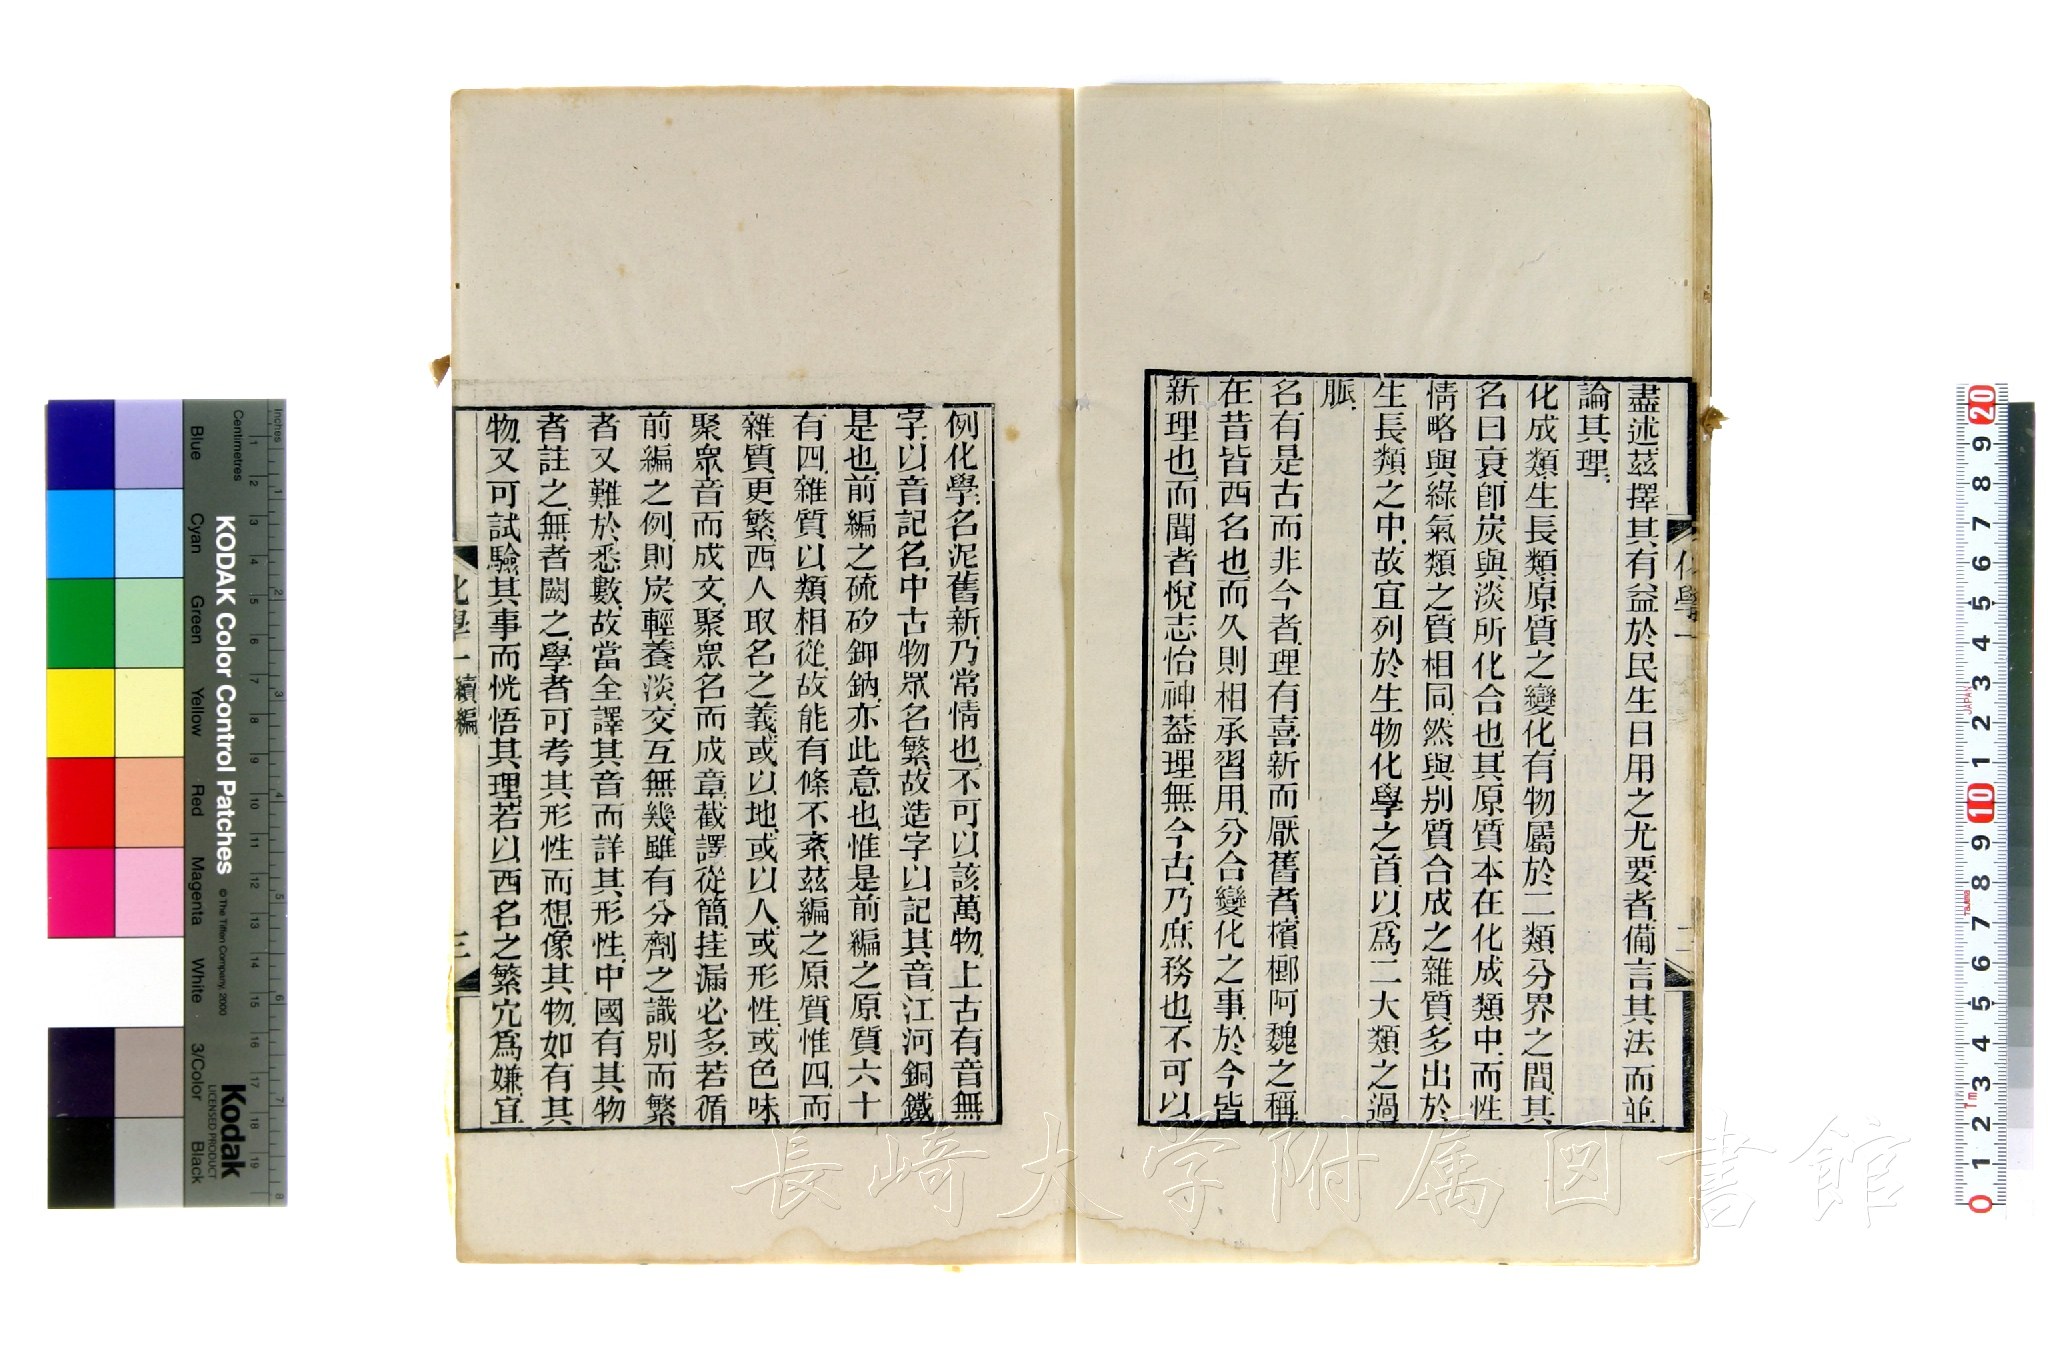 盡述茲擇其有益於民生日用之尤要者備言其法而並
論其理
化成類生長類原質之變化有物屬於二類分界之間其
名曰衰卽炭與淡所化合也其原質本在化成類中而性
情略與綠氣類之質相同然與別質合成之雜質多出於
生長類之中故宜列於生物化學之首以爲二大類之過
脈
名有是古而非今者理有喜新而厭舊者檳榔阿魏之稱
在昔皆西名也而久則相承習用分合變化之事於今皆
新理也而聞者悅志怡神葢理無今古乃庶務也不可以
化學一
二
例化學名泥舊新乃常情也不可以該萬物上古有音無
字以音記名中古物眾名繁故造字以記其音江河銅鐵
是也前編之硫矽鉀鈉亦此意也惟是前編之原質六十
有四雜質以類相從故能有條不紊茲編之原質惟四而
雜質更繁西人取名之義或以地或以人或形性或色味
聚眾音而成文聚眾名而成章截譯從簡挂漏必多若循
前編之例則炭輕養淡交互無幾雖有分劑之識別而繁
者又難於悉數故當全譯其音而詳其形性中國有其物
者註之無者闕之學者可考其形性而想像其物如有其
物又可試驗其事而恍悟其理若以西名之繁冗爲嫌宜
化學一 續編
三
長崎大学附属図書館
KODAK Color Control Patches
© The Tiffen Company, 2000
Kodak
LICENSED PRODUCT
Inches
Centimetres
Blue
Cyan
Green
Yellow
Red
Magenta
White
3/Color
Black
JAPAN
Tajima